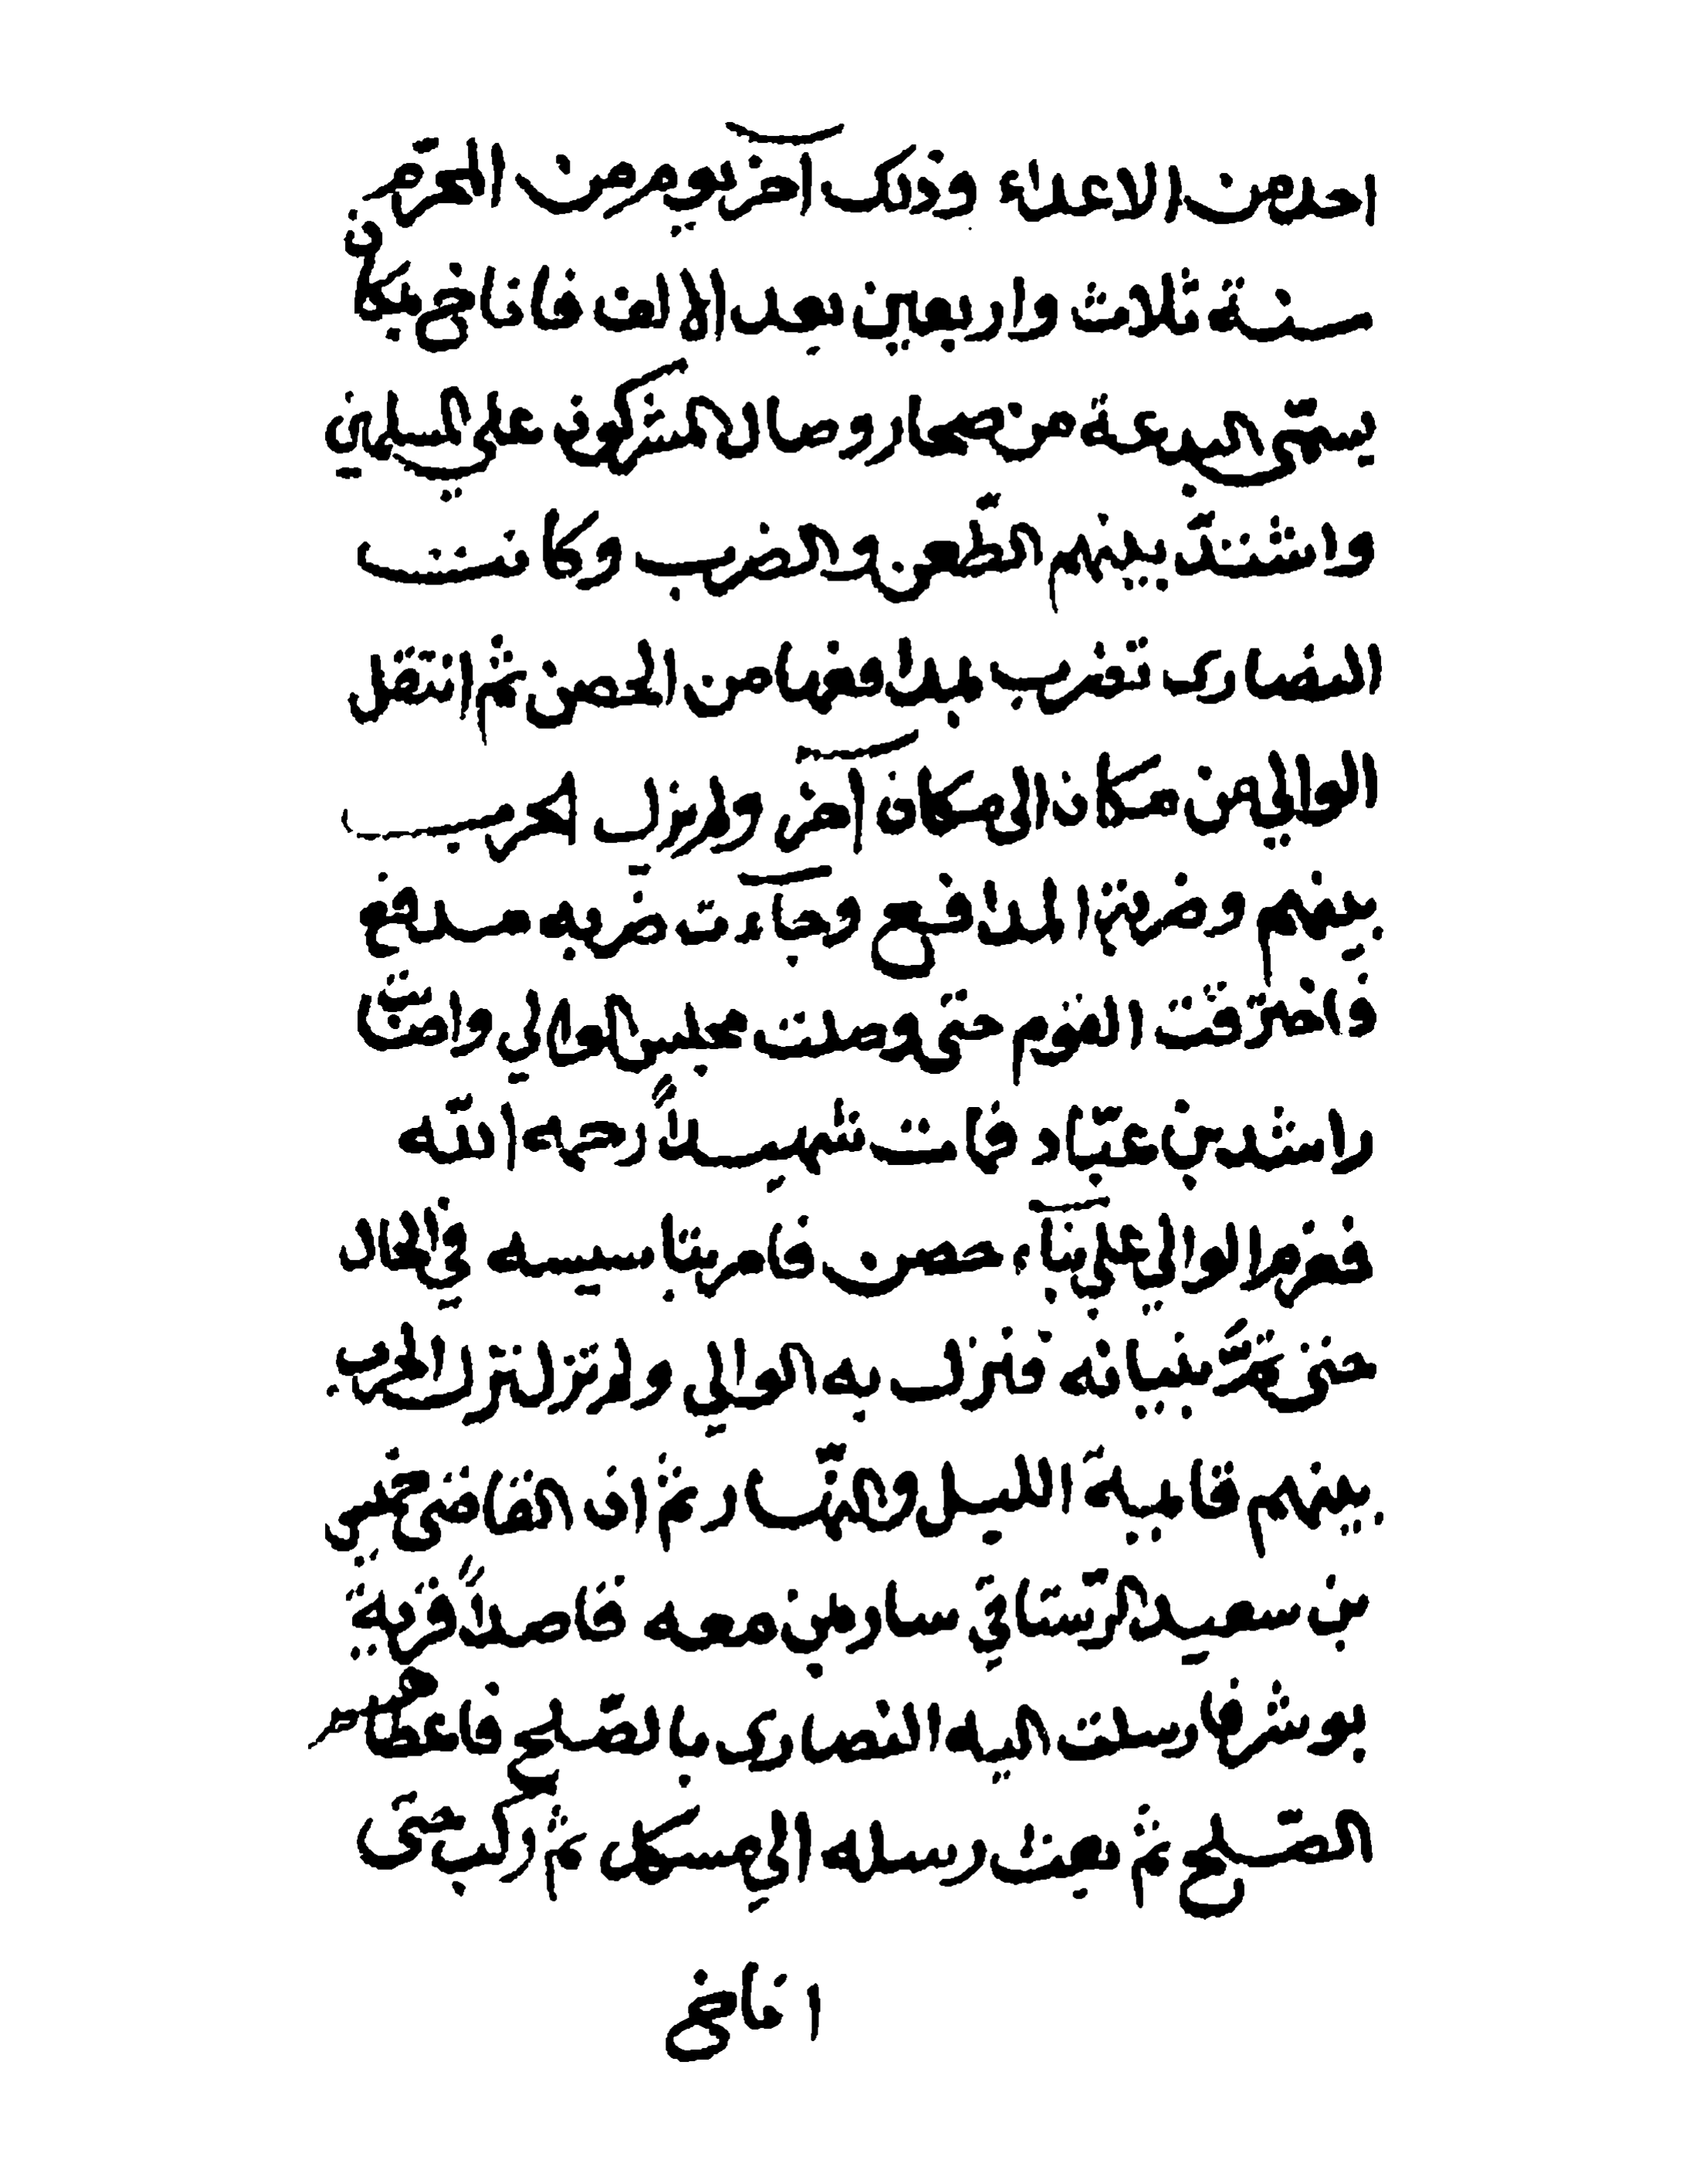 احد من الاعداء وذلك آخر يوم من المحرّم
سنة ثلاث واربعين بعد الالف فاناخ بمكان
يسمّى البدعة من صحار وصال المشركون على المسلمين
واشتدّ بينهم الطّعن والضرب وكانت
النصارى تضرب بمدافعها من الحصن ثم انتقل
الوالي من مكان الى مكان آخر ولم يزل الحرب
بينهم وضربة المدافع وجآءت ضربه مدفع
فاخترقت القوم حتى وصلت مجلس الوالي واصابت
راشد بن عبّاد فمات شهيداً رحمه الله
فعزم الوالي على بنآء حصن فامر بتاسيسه في الحال
حتى تمّ بنيانه فنزل به الوالي ولم تزل تنزل الحرب
بينهم قايمة الليل والنّهار ثم ان القاضي خميس
بن سعيد الرّستاقي سار بمن معه قاصداً قرية
بوشر فارسلت اليه النصارى بالصّلح فاعطاهم
الصّلح ثم بعث رسله الى مسكد ثم ركب حتى
اناخ